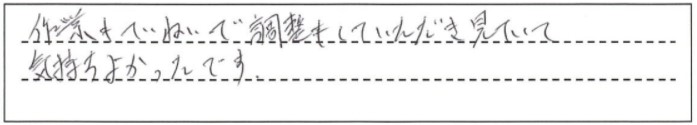 作業もていねいで調整もしていただき見ていて
気持ちよかったです.